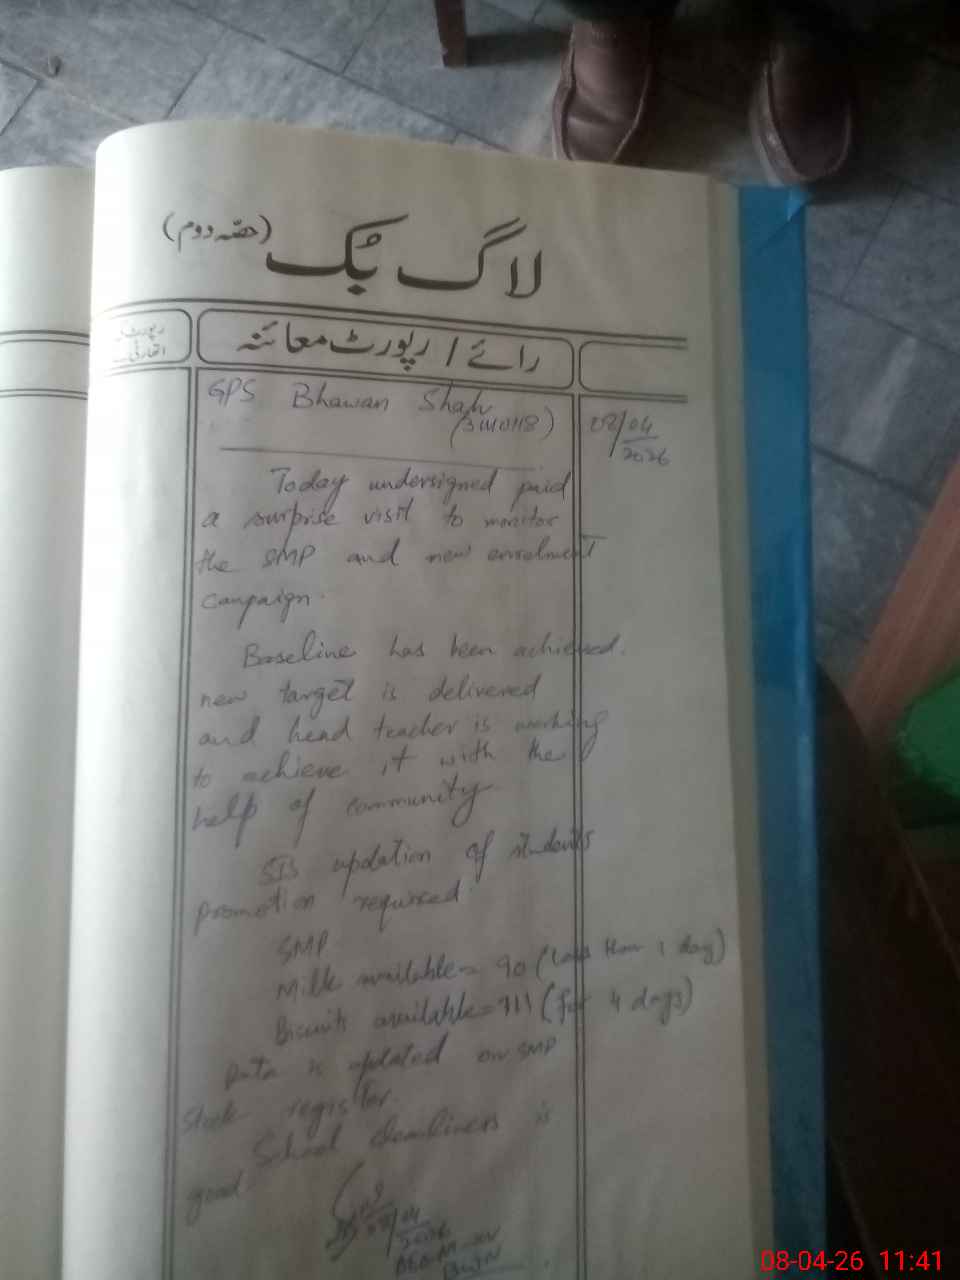 لاگ بُک (حصّہ دوم)
رائے / رپورٹ معائنہ
رپورٹ
GPS Bhawan Shah
08/04
2026
Today undersigned paid
a surprise visit to monitor
the SMP and new enrolment
campaign.
Baseline has been achieved.
new target is delivered
and head teacher is working
to achieve it with the
help of community.
SIS updation of students
promotion required
SMP
Milk available = 90 (Less than 1 day)
Biscuits available = 911 (for 4 days)
Data is updated on SMP
stock register.
School cleanliness is
good
04
2026
08-04-26 11:41